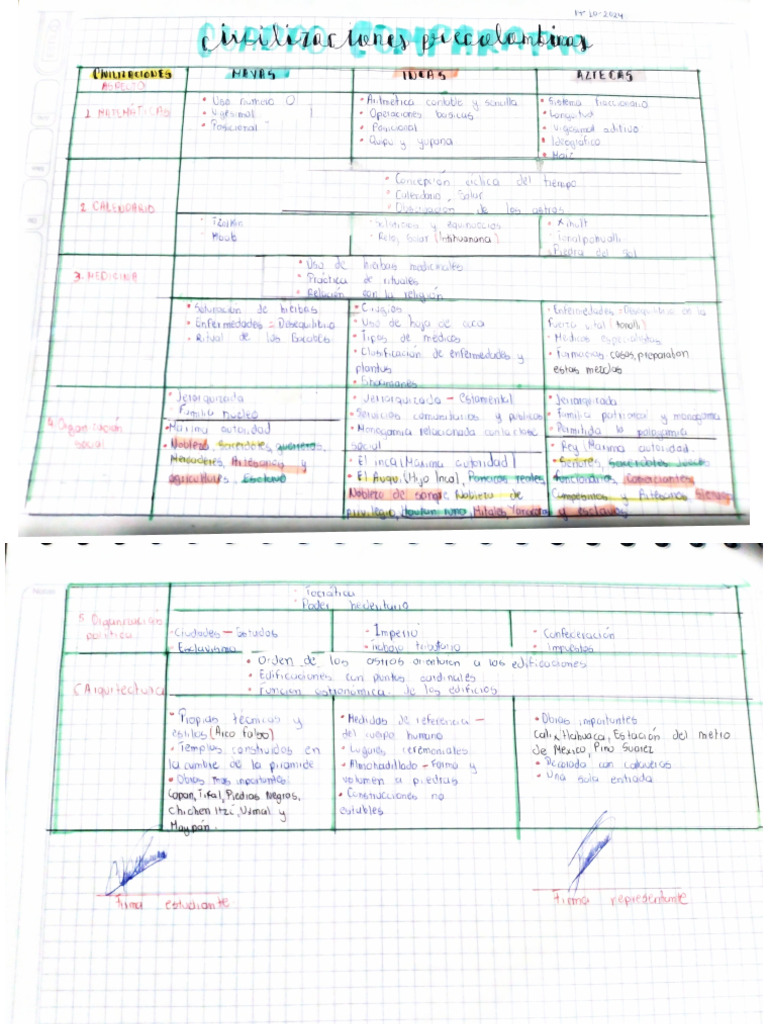 17-10-2024
CUADRO COMPARATIVO
Civilizaciones precolombinas
CIVILIZACIONES MAYAS INCAS AZTECAS
ASPECTO
1. MATEMÁTICAS
• Uso numero 0
• Vigesimal
• Posicional
• Aritmética contable y sencilla
• Operaciones basicas
• Posicional
• Quipu y yupana
• Sistema fraccionario
• Longitud
• Vigesimal aditivo
• Ideográfico
• Maíz
2. CALENDARIO
• Concepción cíclica del tiempo
• Calendario solar
• Observación de los astros
• Tzolkin
• Haab
• Solsticios y equinoccios
• Reloj solar (Intihuanana)
• Xihuitl
• Tonalpohualli
• Piedra del Sol
3. MEDICINA
• Uso de hierbas medicinales
• Práctica de rituales
• Relación con la religión
• Saturación de hierbas
• Enfermedades = Desequilibrio
• Ritual de los Bacabes
• Cirugías
• Uso de hoja de coca
• Tipos de médicos
• Clasificación de enfermedades y
plantas
• Enfermedades = Desequilibrio en la
fuerza vital (tonalli)
• Médicos especialistas
• Farmacias casas, preparaban
estas mezclas
4. Organización
social
• Jerarquizada
• Familia nucleo
• Máxima autoridad
• Nobleza, Sacerdotes, guerreros,
Mercaderes, Artesanos y
agricultures, Esclavo
• Jerarquizada - Estamental
• Servicios comunitarios y publicos
• Monogamia relacionada con la clase
social
• El inca (Máxima autoridad)
• El Auqui (Hijo Inca), Panacas reales
Nobleza de sangre Nobleza de
privilegio, Hautun runo, Mitales, Yanaconas
• Jerarquizada
• Familia patriarcal y monogama
• Permitida la poligamia
• Rey (Maxima autoridad.
• Señores, Sacerdotes Jueces
funcionarios, Comerciantes,
Campesinos y Artesanos Siervos
y esclavos
5. Organización
política
• Teocrática
• Poder hereditario
• Ciudades - estados
• Esclavismo
• Imperio
• Trabajo tributario
• Confederación
• Impuestos
6 Arquitectura
• Orden de los astros orientaron a las edificaciones
• Edificaciones con puntos cardinales
• Función astronómica de los edificios
• Propias técnicas y
estilos (Arco falso)
• Templos construidos en
la cumbre de la piramide
• Obras mas importantes:
Copan, Tikal, Piedras Negras,
Chichen Itzí, Uxmal y
Maypán.
• Medidas de referencia -
del cuerpo humano
• Lugares ceremoniales
• Almohadillado - forma y
volumen a piedras
• Construcciones no
estables.
• Obras importantes
Calixtlahuaca, Estación del metro
de México, Pino Suarez
• Decorada con calaveras
• Una sola entrada
Firma estudiante
Firma representante